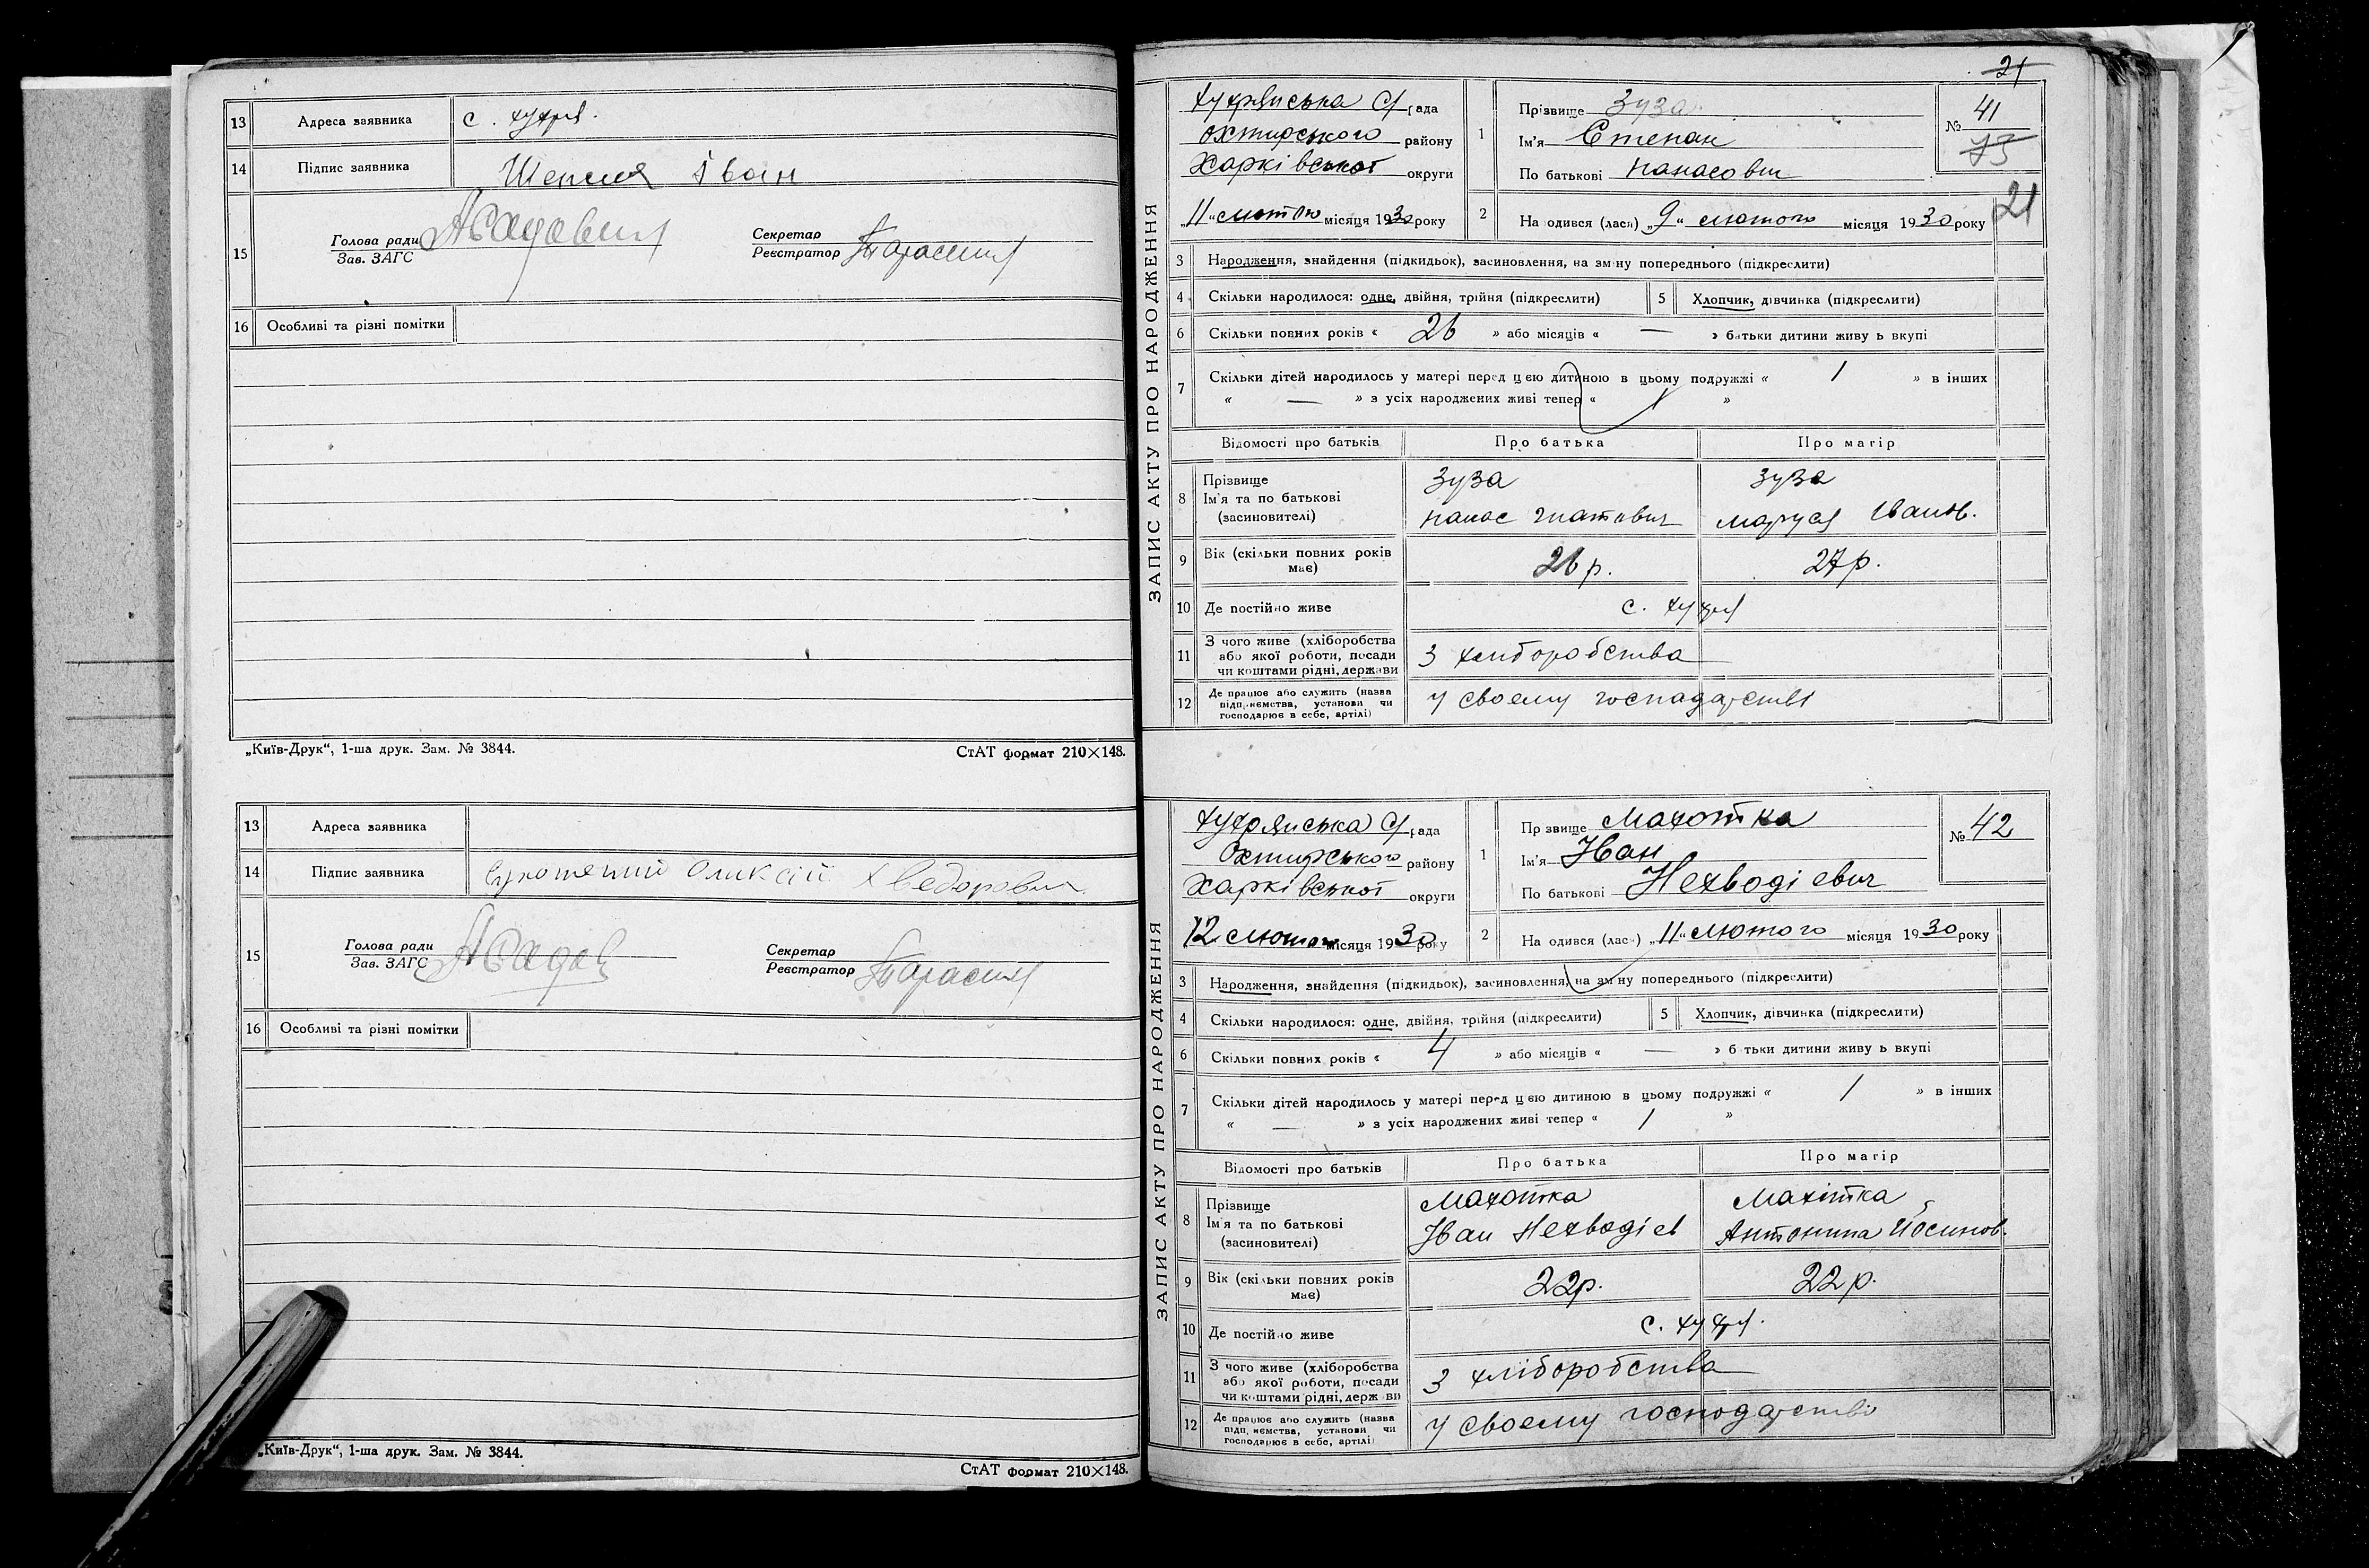 13 Адреса заявника с. хухря.
14 Підпис заявника Шепеля Іван
15 Голова ради Зав. ЗАГС Секретар Реєстратор
16 Особливі та різні помітки
„Київ-Друк“, 1-ша друк. Зам. № 3844. СтАТ формат 210×148.
13 Адреса заявника
14 Підпис заявника Оликсій Хведорович
15 Голова ради Зав. ЗАГС Секретар Реєстратор
16 Особливі та різні помітки
„Київ-Друк“, 1-ша друк. Зам. № 3844.
СтАТ формат 210×148.
21
ЗАПИС АКТУ ПРО НАРОДЖЕННЯ
хухрянська С/рада
охтирського району
Харківської округи
„11“ лютого місяця 1930 року
1 Прізвище Зуза
Ім'я Степан
По батькові Панасович
№ 41
73
21
2 На одився (лася) „9“ лютого місяця 1930 року
3 Народження, знайдення (підкидьок), засиновлення, на зміну попереднього (підкреслити)
4 Скільки народилося: одне, двійня, трійня (підкреслити) 5 Хлопчик, дівчинка (підкреслити)
6 Скільки повних років « 26 » або місяців « — » батьки дитини живу ь вкупі
7 Скільки дітей народилось у матері перед цією дитиною в цьому подружжі « 1 » в інших
« — » з усіх народжених живі тепер « 1 »
Відомості про батьків Про батька Про матір
8 Прізвище Ім'я та по батькові (засиновителі)
Зуза Зуза
панас гнатович маруся Іванов.
9 Вік (скільки повних років має) 26 р. 27 р.
10 Де постійно живе с. хухря
11 З чого живе (хліборобства або якої роботи, посади чи коштами рідні, держави
З хлиборобства
12 Де працює або служить (назва підприємства, установи чи господарює в себе, артілі)
у своему господарстві
ЗАПИС АКТУ ПРО НАРОДЖЕННЯ
хухрянська С/рада
Охтирського району
Харківської округи
12 лютого місяця 1930 року
1 Пр звище Махотка
Ім'я Іван
По батькові Нехводієвич
№ 42
2 На одився (лася) „11“ лютого місяця 1930 року
3 Народження, знайдення (підкидьок), засиновлення, на зміну попереднього (підкреслити)
4 Скільки народилося: одне, двійня, трійня (підкреслити) 5 Хлопчик, дівчинка (підкреслити)
6 Скільки повних років « 4 » або місяців « — » б тьки дитини живу ь вкупі
7 Скільки дітей народилось у матері перед цією дитиною в цьому подружжі « 1 » в інших
« — » з усіх народжених живі тепер « 1 »
Відомості про батьків Про батька Про матір
8 Прізвище Ім'я та по батькові (засиновителі)
Махотка Махітка
Іван Нехводієв Антонина Йосипов.
9 Вік (скільки повних років має) 22р. 22 р.
10 Де постійно живе с. хухря.
11 З чого живе (хліборобства або якої роботи, посади чи коштами рідні, держ ви
З хліборобства
12 Де працює або служить (назва підприємства, установи чи господарює в себе, артілі)
у своему господарстві